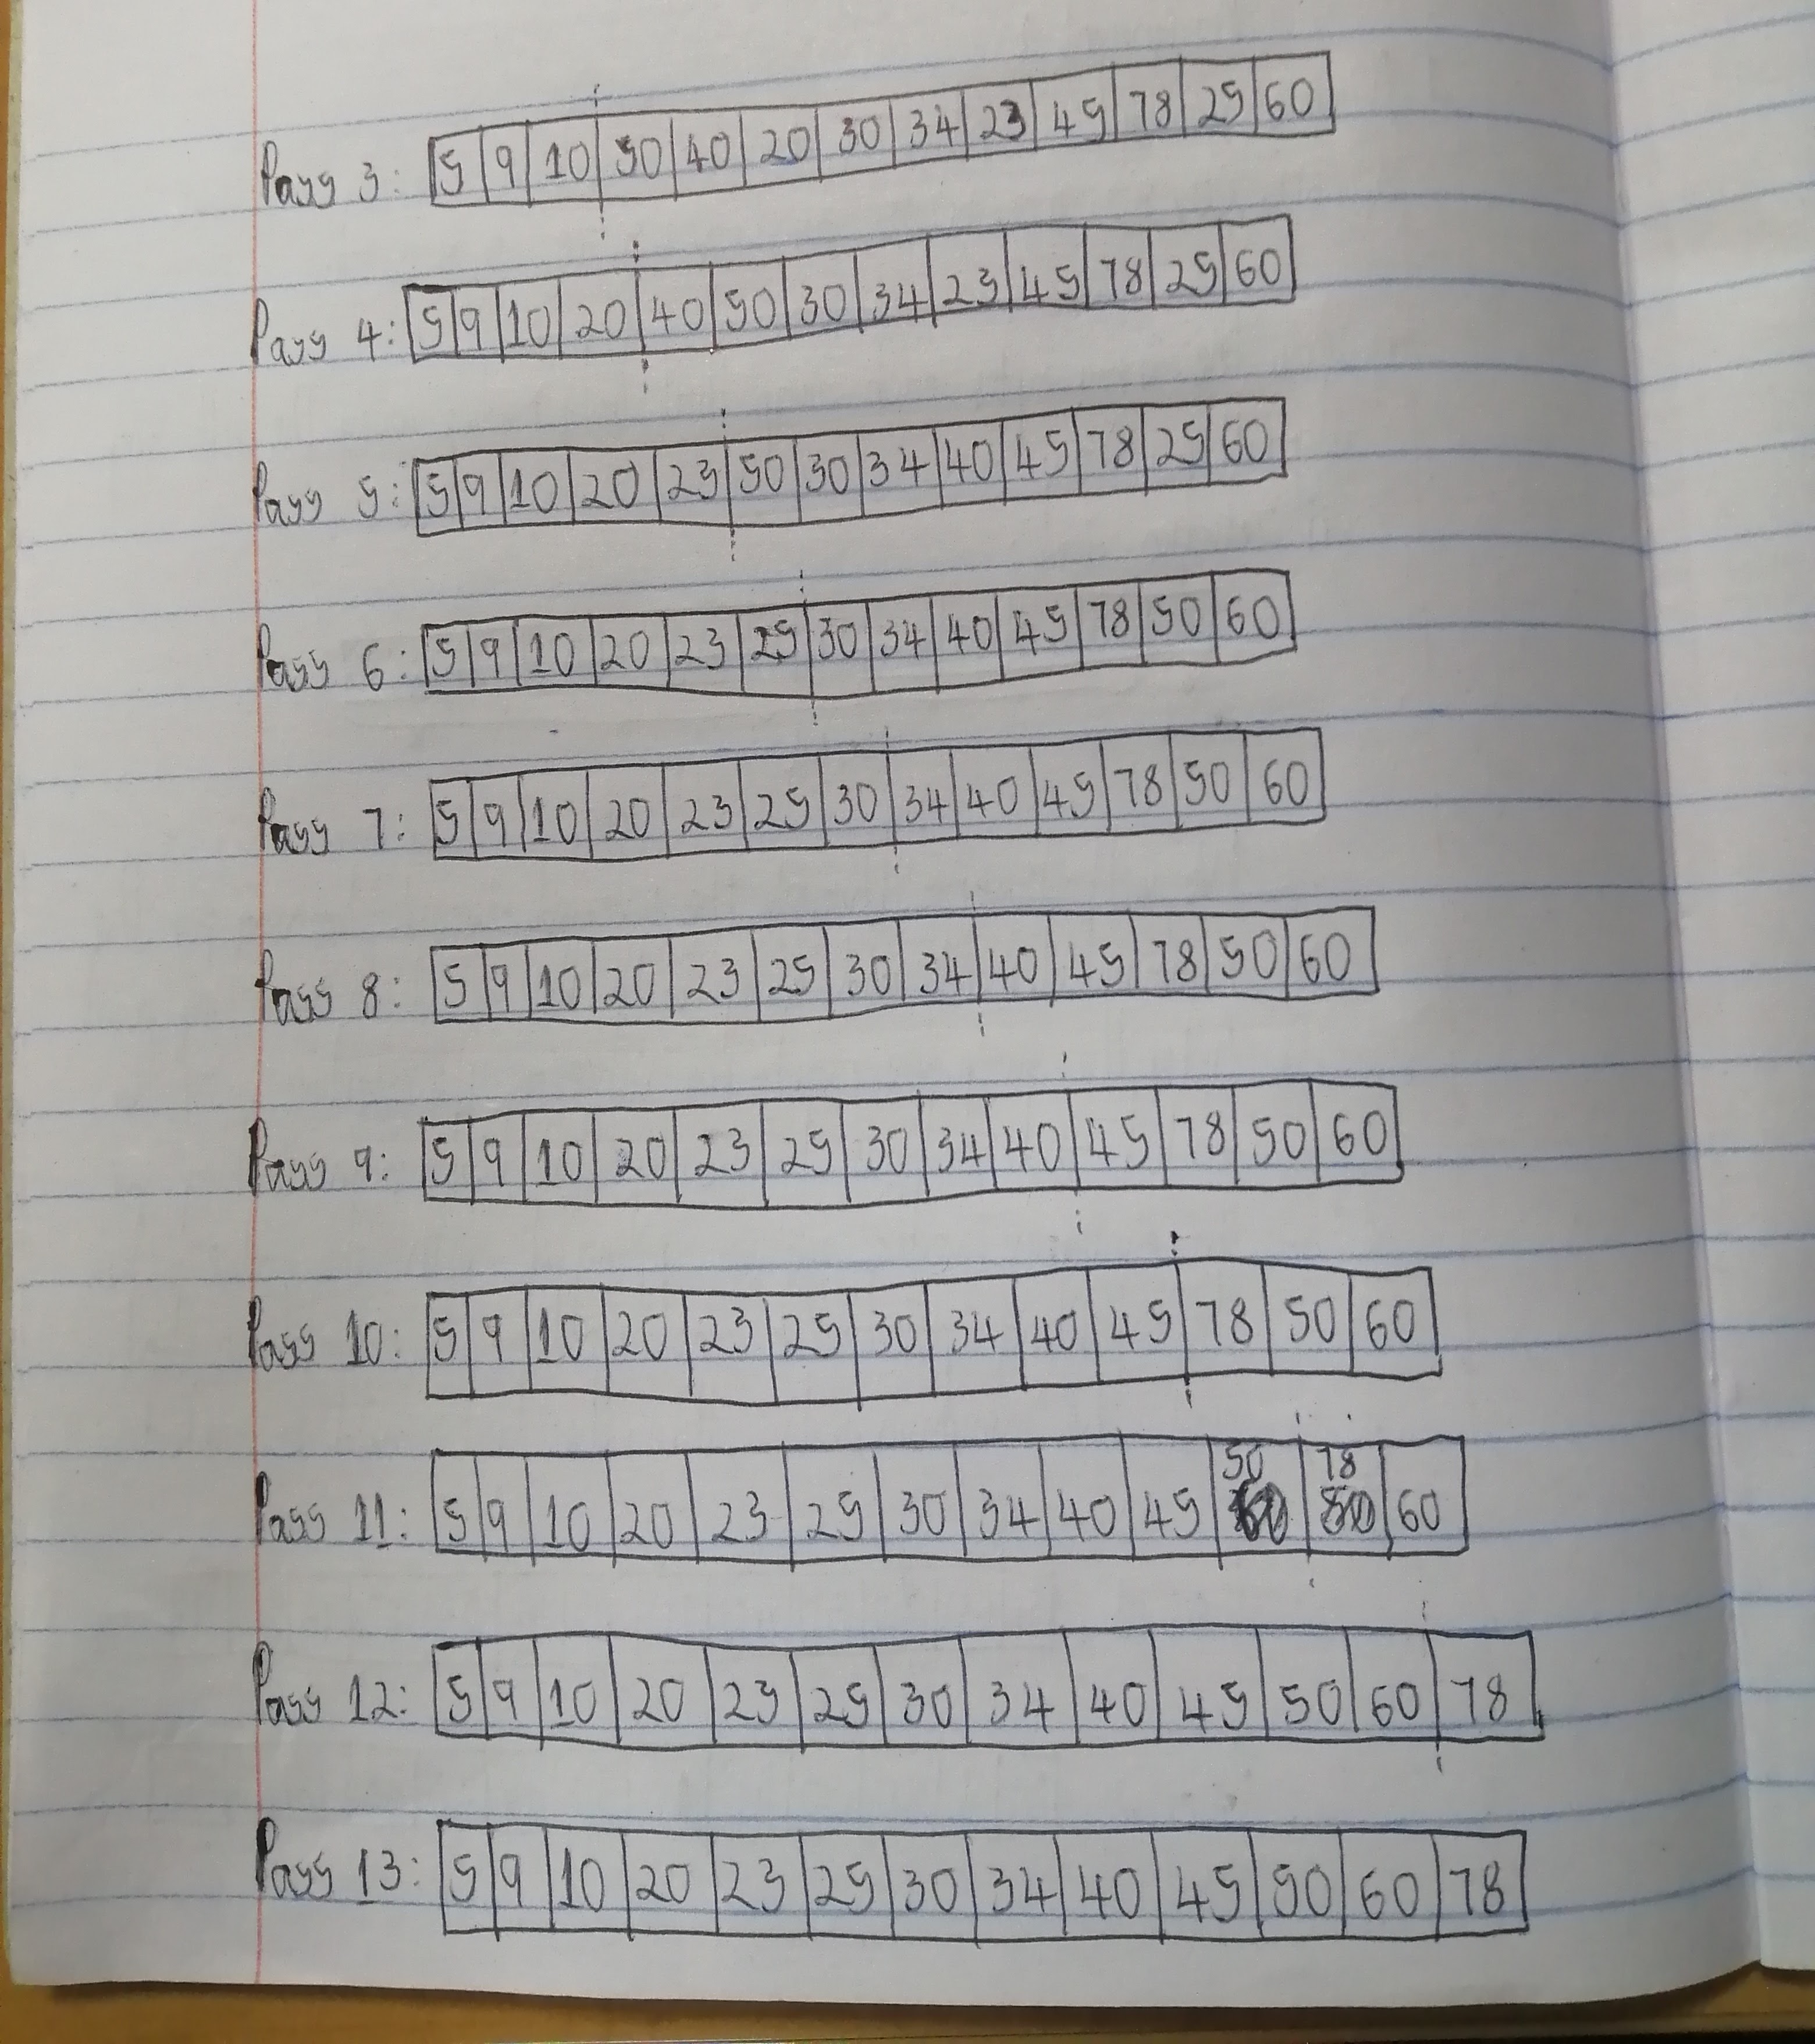 Pass 3: 5 9 10 50 40 20 30 34 23 45 78 25 60
Pass 4: 5 9 10 20 40 50 30 34 23 45 78 25 60
Pass 5: 5 9 10 20 23 50 30 34 40 45 78 25 60
Pass 6: 5 9 10 20 23 25 30 34 40 45 78 50 60
Pass 7: 5 9 10 20 23 25 30 34 40 45 78 50 60
Pass 8: 5 9 10 20 23 25 30 34 40 45 78 50 60
Pass 9: 5 9 10 20 23 25 30 34 40 45 78 50 60
Pass 10: 5 9 10 20 23 25 30 34 40 45 78 50 60
Pass 11: 5 9 10 20 23 25 30 34 40 45 50 78 60
Pass 12: 5 9 10 20 23 25 30 34 40 45 50 60 78
Pass 13: 5 9 10 20 23 25 30 34 40 45 50 60 78